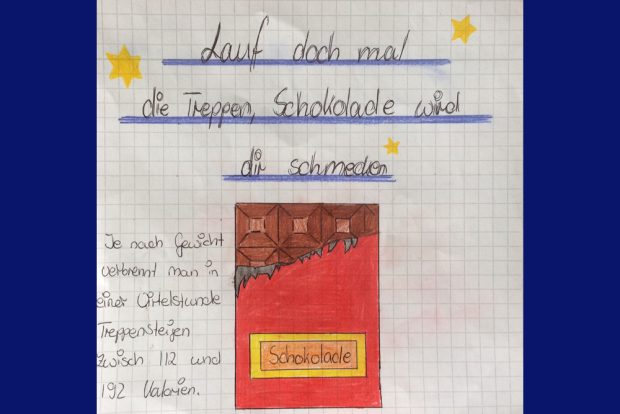 Lauf doch mal
die Treppen, Schokolade wird
dir schmecken
Je nach Gewicht
verbrennt man in
einer Virtelstunde
Treppensteigen
zwisch 112 und
192 Kalorien.
Schokolade